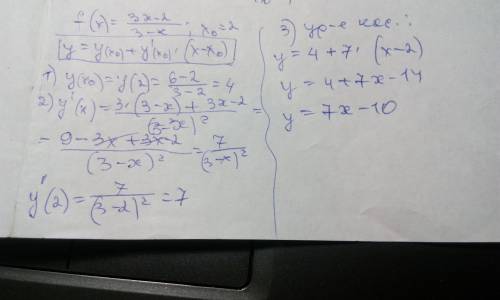 f(x) = (3x-2)/(3-x); x₀=2
y = y(x₀) + y'(x₀)·(x-x₀)
1) y(x₀) = y(2) = (6-2)/(3-2) = 4
2) y'(x) = (3·(3-x) + 3x-2)/(3-x)² =
= (9-3x+3x-2)/(3-x)² = 7/(3-x)²
y'(2) = 7/(3-2)² = 7
3) ур-е кас.:
y = 4 + 7·(x-2)
y = 4 + 7x - 14
y = 7x - 10